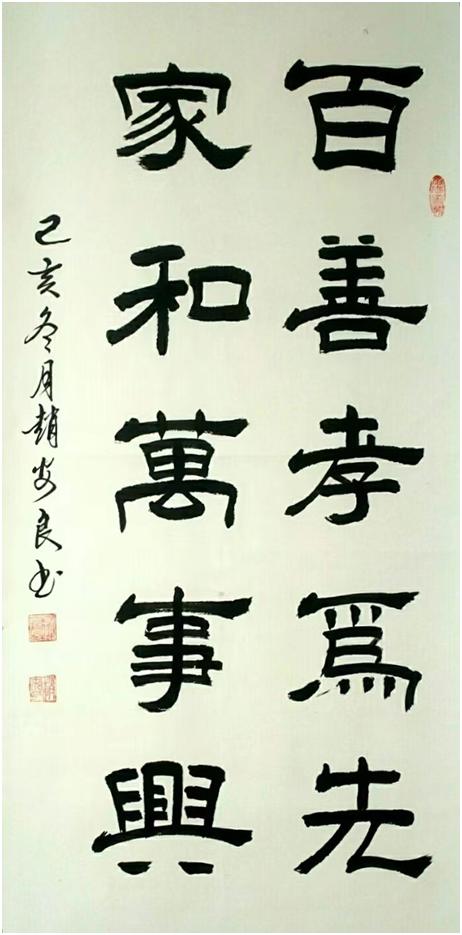 百善孝爲先
家和萬事興
己亥冬月趙安良书